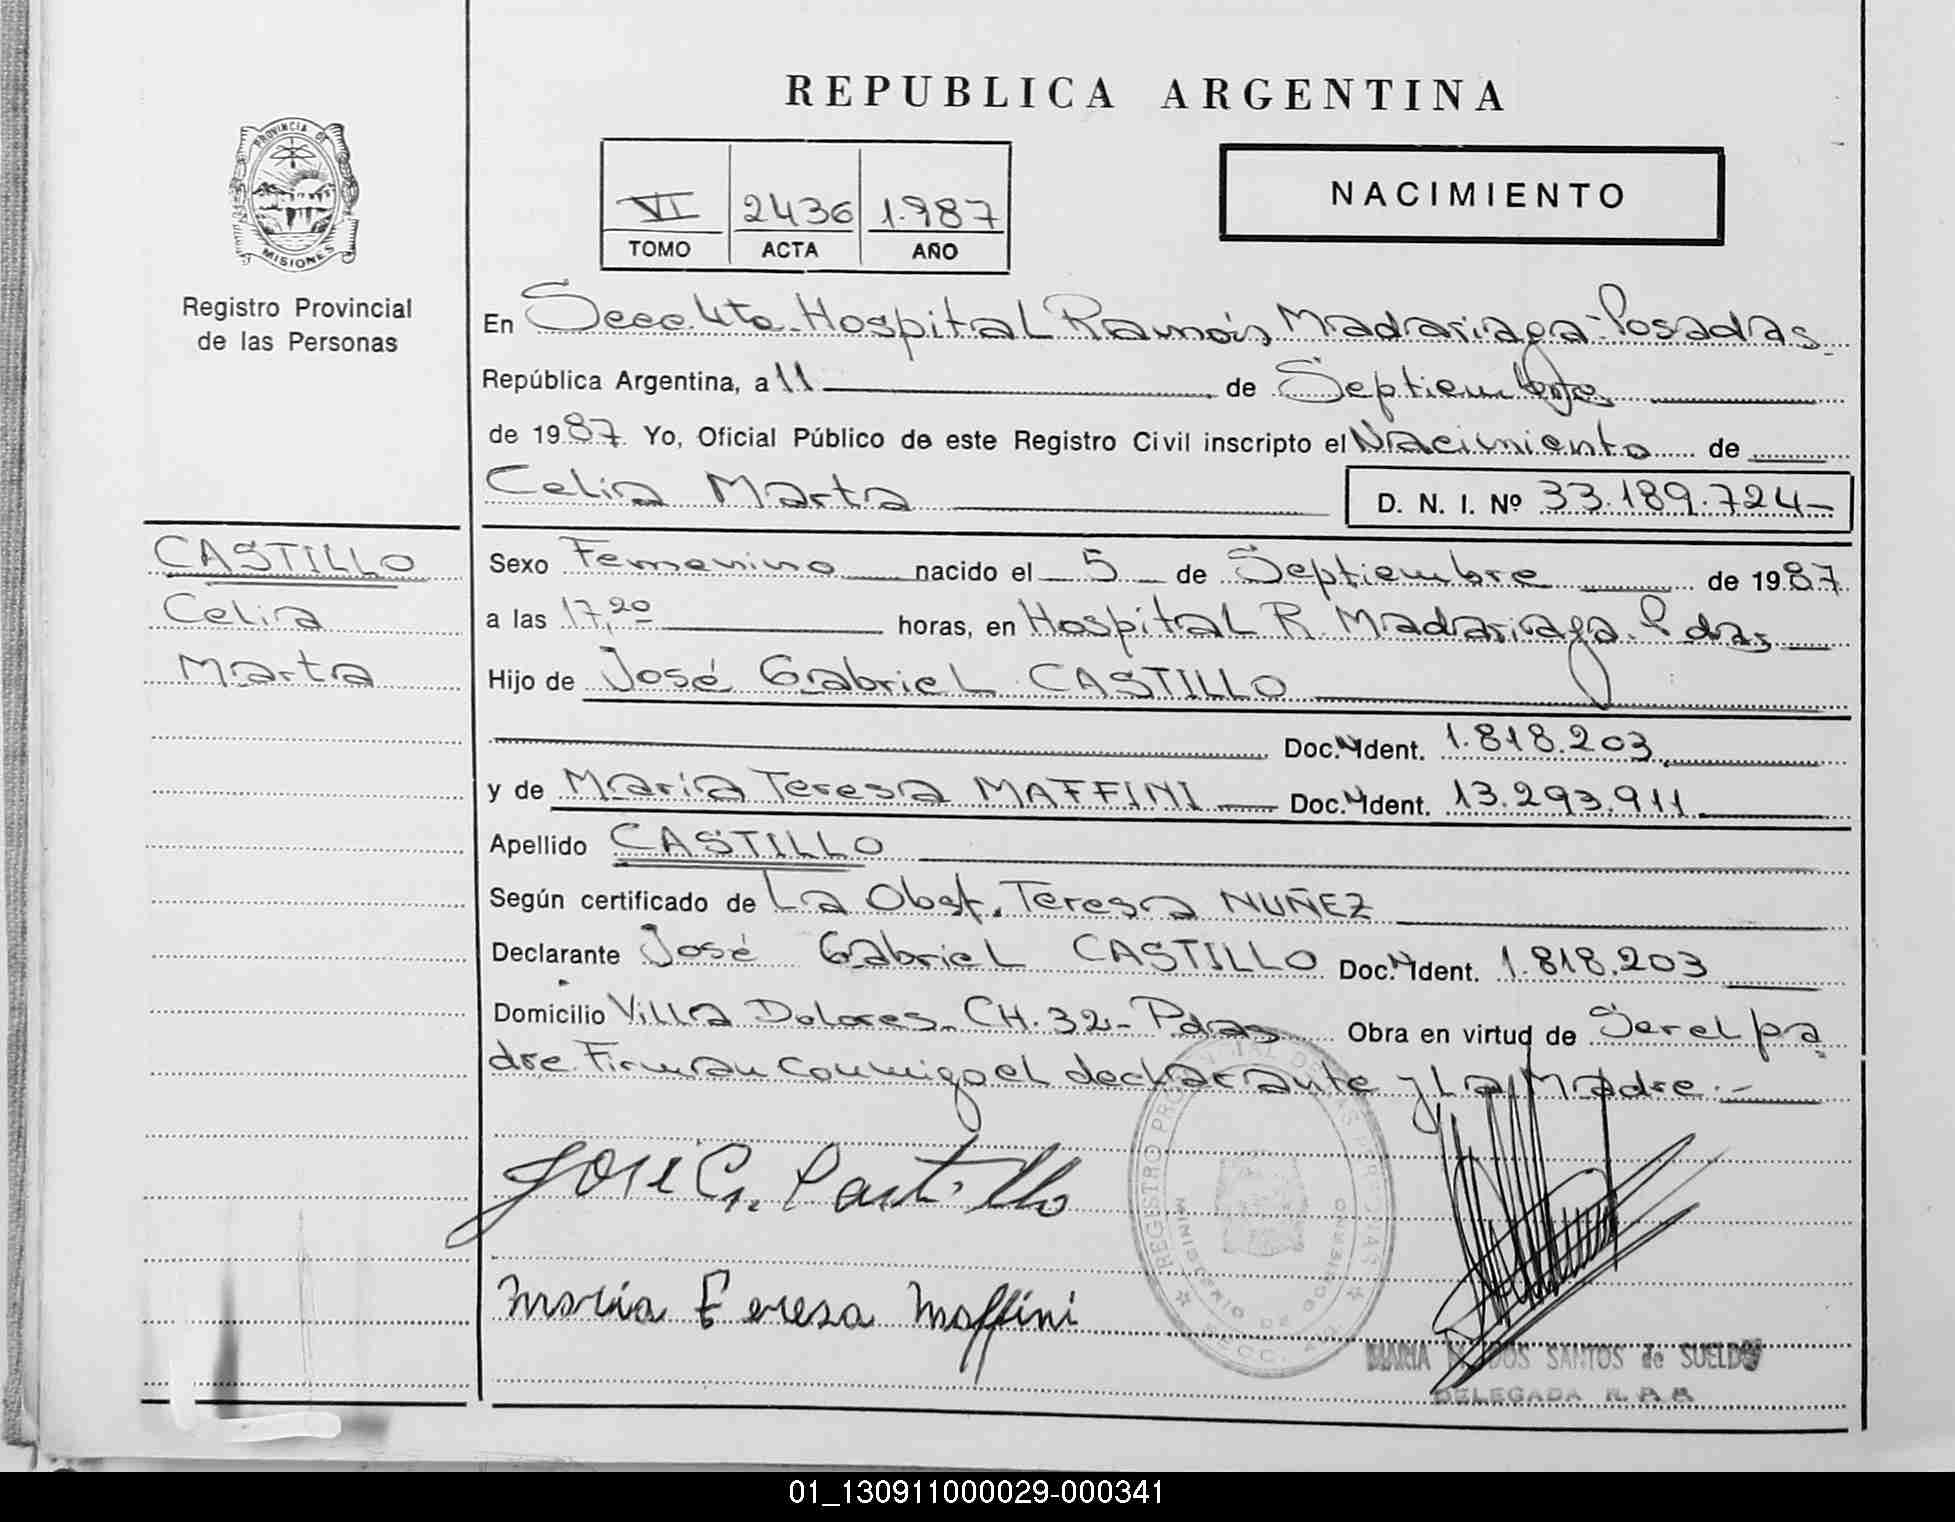 REPUBLICA ARGENTINA
PROVINCIA DE
MISIONES
Registro Provincial
de las Personas
VI 2436 1.987
TOMO ACTA AÑO
NACIMIENTO
En Secc. 4ta. Hospital Ramón Madariaga - Posadas.
República Argentina, a 11 de Septiembre
de 1987 Yo, Oficial Público de este Registro Civil inscripto el Nacimiento de
Celia Marta
D. N. I. Nº 33.189.724-
CASTILLO
Celia
Marta
Sexo Femenino nacido el 5 de Septiembre de 1987
a las 17,20 horas, en Hospital R. Madariaga. Pdas,
Hijo de José Gabriel CASTILLO
Doc. Ident. 1.818.203
y de María Teresa MAFFINI Doc. Ident. 13.293.911
Apellido CASTILLO
Según certificado de La Obst. Teresa NUÑEZ
Declarante José Gabriel CASTILLO Doc. Ident. 1.818.203
Domicilio Villa Dolores. CH. 32 - Pdas Obra en virtud de Ser el pa
dre. Firman conmigo el declarante y La Madre.-
José G. Castillo
María Teresa Maffini
REGISTRO PROVINCIAL DE LAS PERSONAS
MINISTERIO DE GOBIERNO
SECC. 4ta.
MARIA DOS SANTOS de SUELDO
DELEGADA R. P. P.
01_130911000029-000341